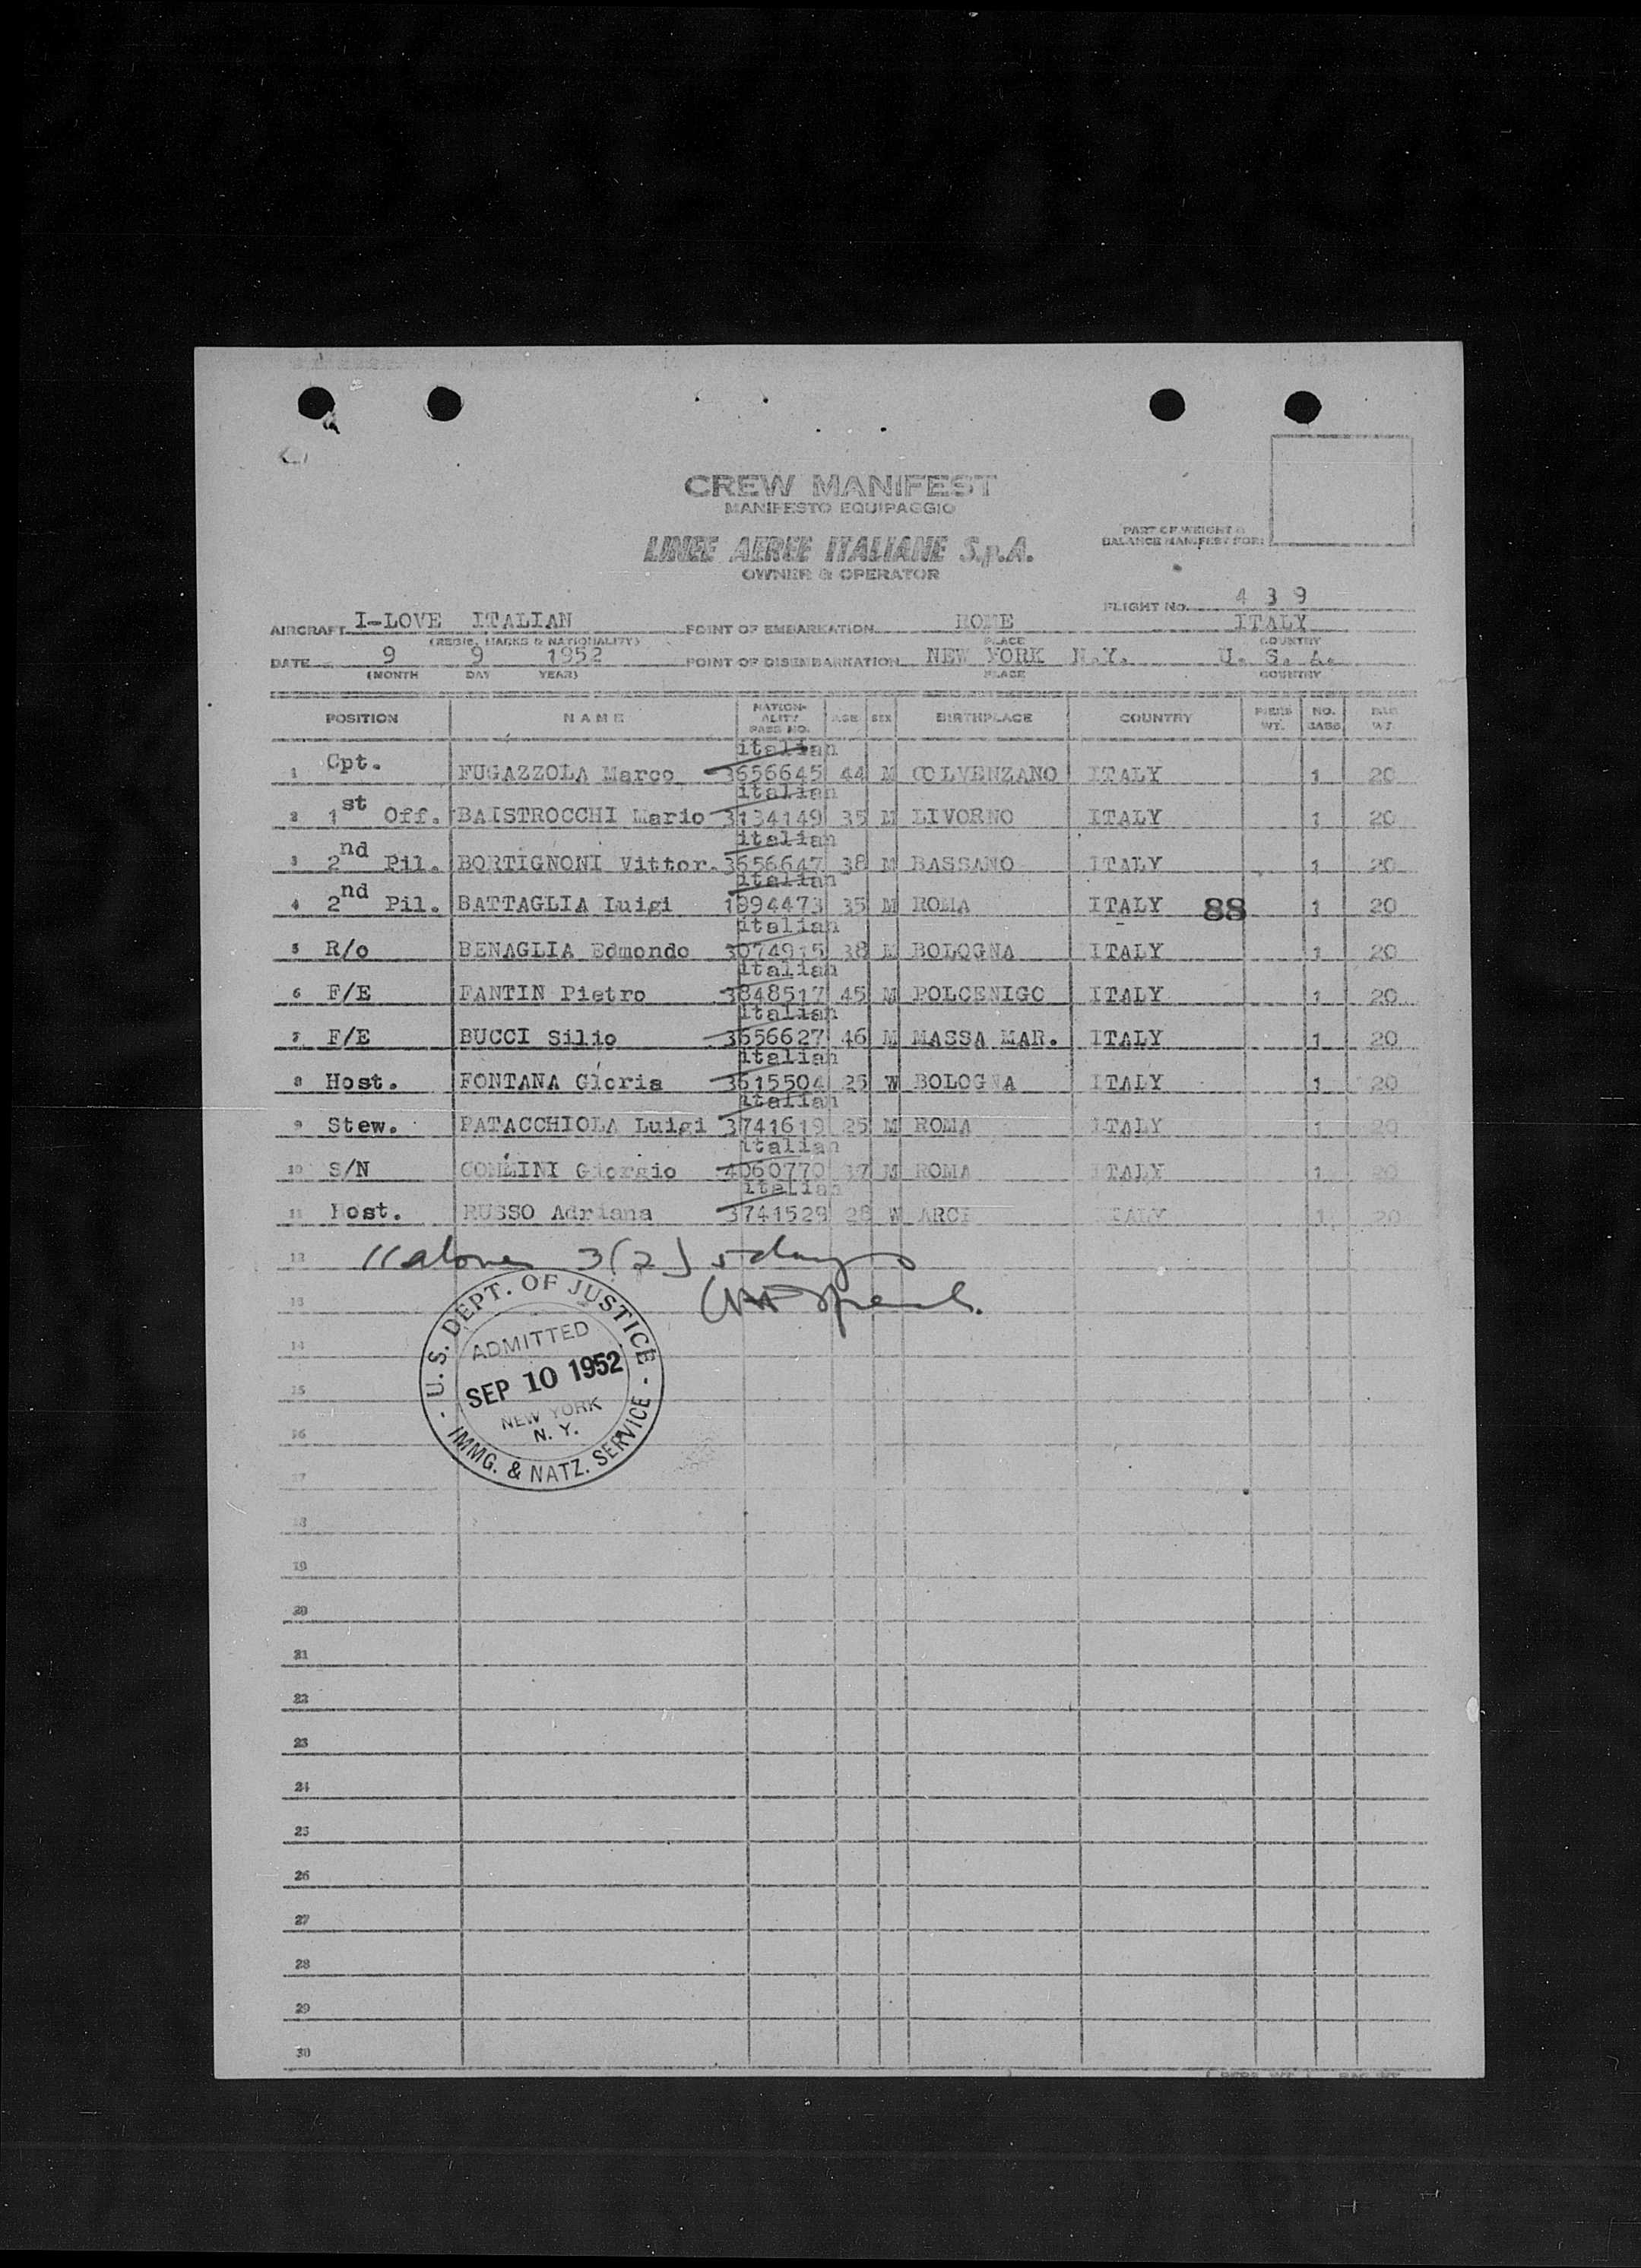 CREW MANIFEST
MANIFESTO EQUIPAGGIO
LINEE AEREE ITALIANE S.p.A.
OWNER & OPERATOR
PART OF WEIGHT &
BALANCE MANIFEST FOR:
FLIGHT No. 439
AIRCRAFT I-LOVE ITALIAN POINT OF EMBARKATION ROME ITALY
(REGIS. MARKS & NATIONALITY) PLACE COUNTRY
DATE 9 9 1952 POINT OF DISEMBARKATION NEW YORK N.Y. U. S. A.
(MONTH DAY YEAR) PLACE COUNTRY
POSITION NAME NATION-ALITY PASS NO. AGE SEX BIRTHPLACE COUNTRY PERS WT. NO. BAGS BAG WT.
italian
1 Cpt. FUGAZZOLA Marco 3656645 44 M COLVENZANO ITALY 1 20
italian
2 1st Off. BAISTROCCHI Mario 3134149 35 M LIVORNO ITALY 1 20
italian
3 2nd Pil. BORTIGNONI Vittor. 3656647 38 M BASSANO ITALY 1 20
italian
4 2nd Pil. BATTAGLIA Luigi 1894473 35 M ROMA ITALY 88 1 20
italian
5 R/o BENAGLIA Edmondo 3074915 38 M BOLOGNA ITALY 1 20
italian
6 F/E FANTIN Pietro 3848517 45 M POLCENIGO ITALY 1 20
italian
7 F/E BUCCI Silio 3656627 46 M MASSA MAR. ITALY 1 20
italian
8 Host. FONTANA Gloria 3615504 25 W BOLOGNA ITALY 1 20
italian
9 Stew. PATACCHIOLA Luigi 3741619 25 M ROMA ITALY 1 20
italian
10 S/N COMMINI Giorgio 4060770 37 M ROMA ITALY 1 20
italian
11 Host. RUSSO Adriana 3741529 28 W ARCE ITALY 1 20
12 11 above 3(2) 5 days
13
14
15
16
17
U.S. DEPT. OF JUSTICE
ADMITTED
SEP 10 1952
NEW YORK
N. Y.
IMMG. & NATZ. SERVICE
18
19
20
21
22
23
24
25
26
27
28
29
30